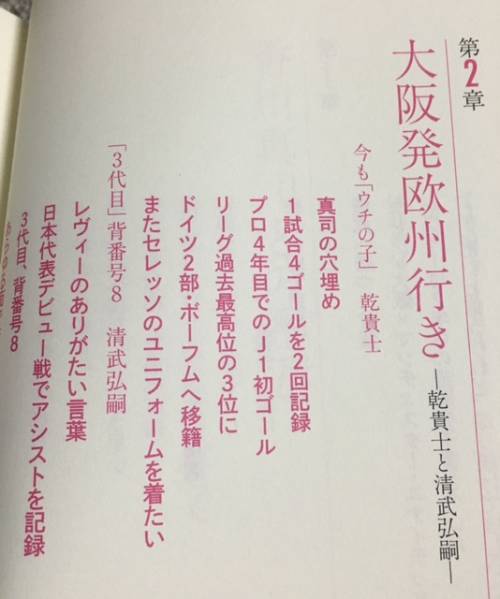 第2章
大阪発欧州行き
―乾貴士と清武弘嗣―
今も「ウチの子」 乾貴士
真司の穴埋め
1試合4ゴールを2回記録
プロ4年目でのJ1初ゴール
リーグ過去最高位の3位に
ドイツ2部・ボーフムへ移籍
またセレッソのユニフォームを着たい
「3代目」背番号8 清武弘嗣
レヴィーのありがたい言葉
日本代表デビュー戦でアシストを記録
3代目、背番号8